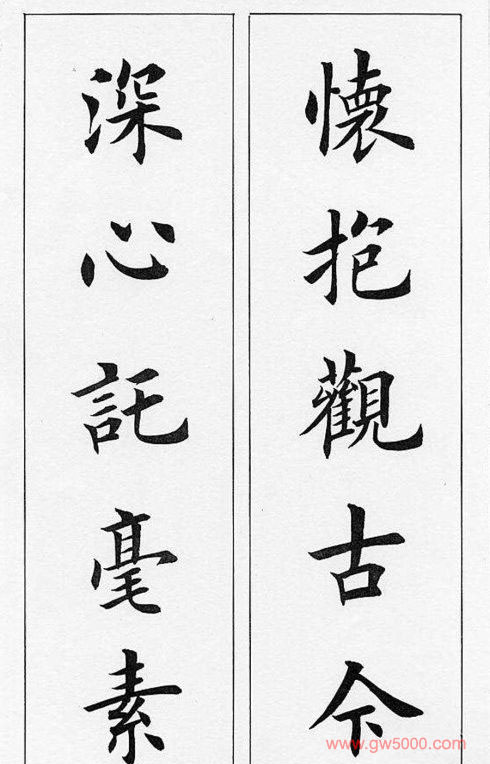 懷抱觀古今
深心託毫素
www.gw5000.com